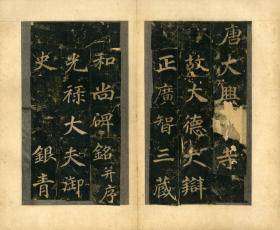 唐大興善寺
故大德大辯
正廣智三藏
和尚碑銘并序
光祿大夫御
史 銀青